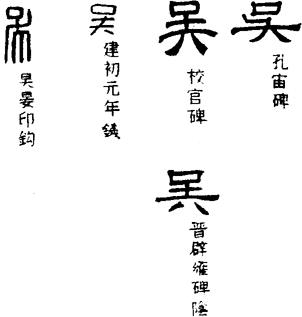 吴
吴晏印鈎
吴
建初元年
吴
校官碑
吳
孔宙碑
吴
晋辟雍碑陰